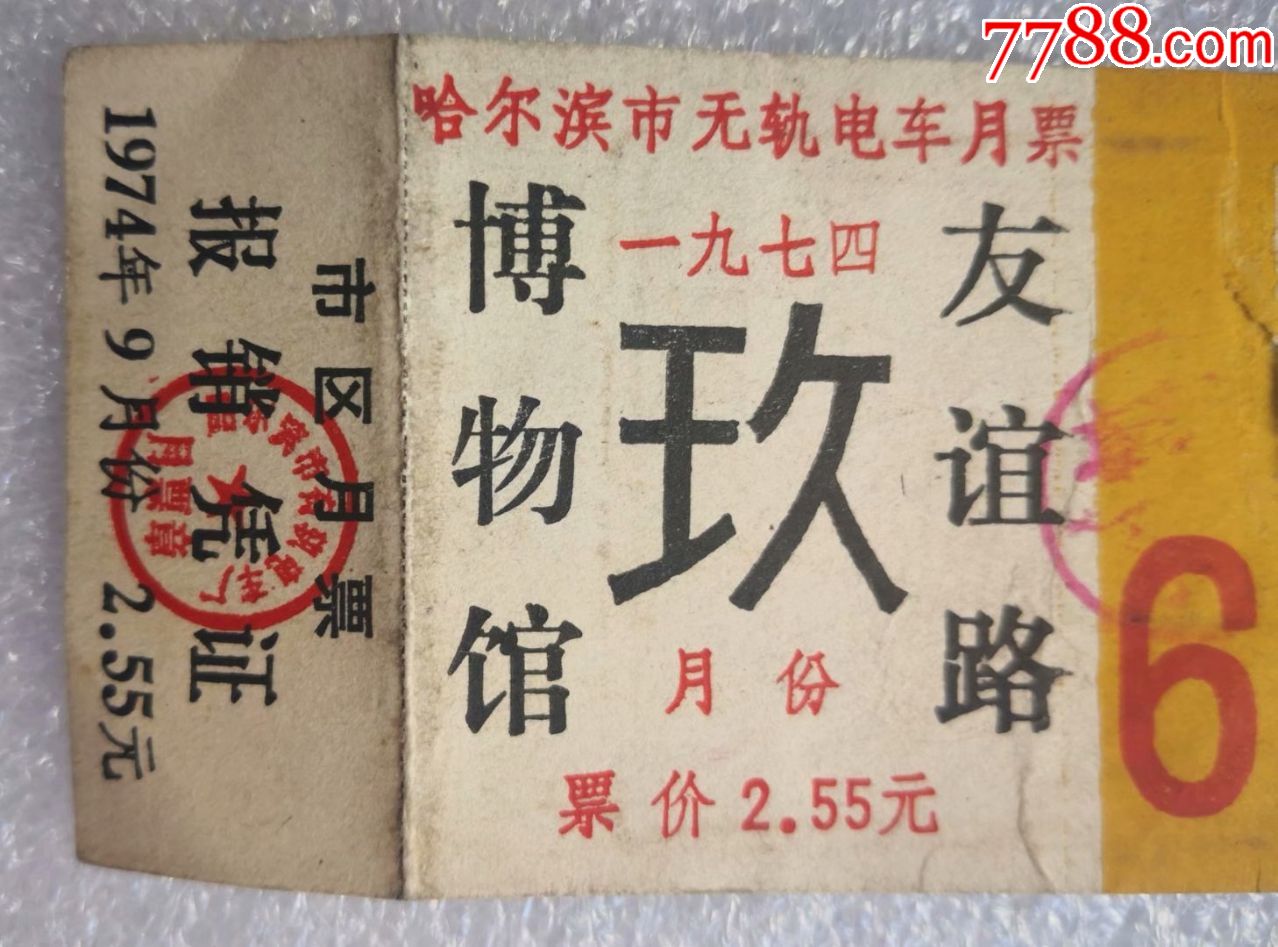 7788.com
哈尔滨市无轨电车月票
一九七四
博物馆
玖
友谊路
月份
票价2.55元
6
市区月票
报销凭证
1974年9月份 2.55元
月票章